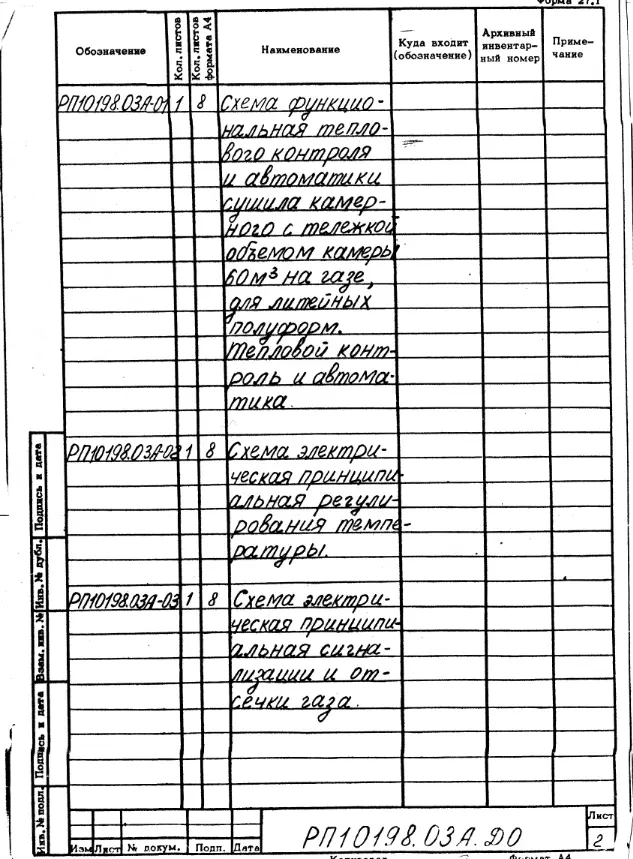 Форма 27.1
Обозначение
Кол. листов
Кол. листов формата А4
Наименование
Куда входит (обозначение)
Архивный инвентар-ный номер
Приме-чание
РП10198.03А-01 1 8 Схема функцио-
нальная тепло-
вого контроля
и автоматики
сушила камер-
ного с тележкой
объемом камеры
60м³ на газе,
для литейных
полуформ.
Тепловой конт-
роль и автома-
тика.
РП10198.03А-02 1 8 Схема электри-
ческая принципи-
альная регули-
рования темпе-
ратуры.
РП10198.03А-03 1 8 Схема электри-
ческая принципи-
альная сигна-
лизации и от-
сечки газа.
Подпись и дата
Инв. № дубл.
Взам. инв. №
Подпись и дата
Инв. № подл.
Изм Лист № докум. Подп. Дата
РП10198.03А.ДО
Лист
2
Копировал Формат А4